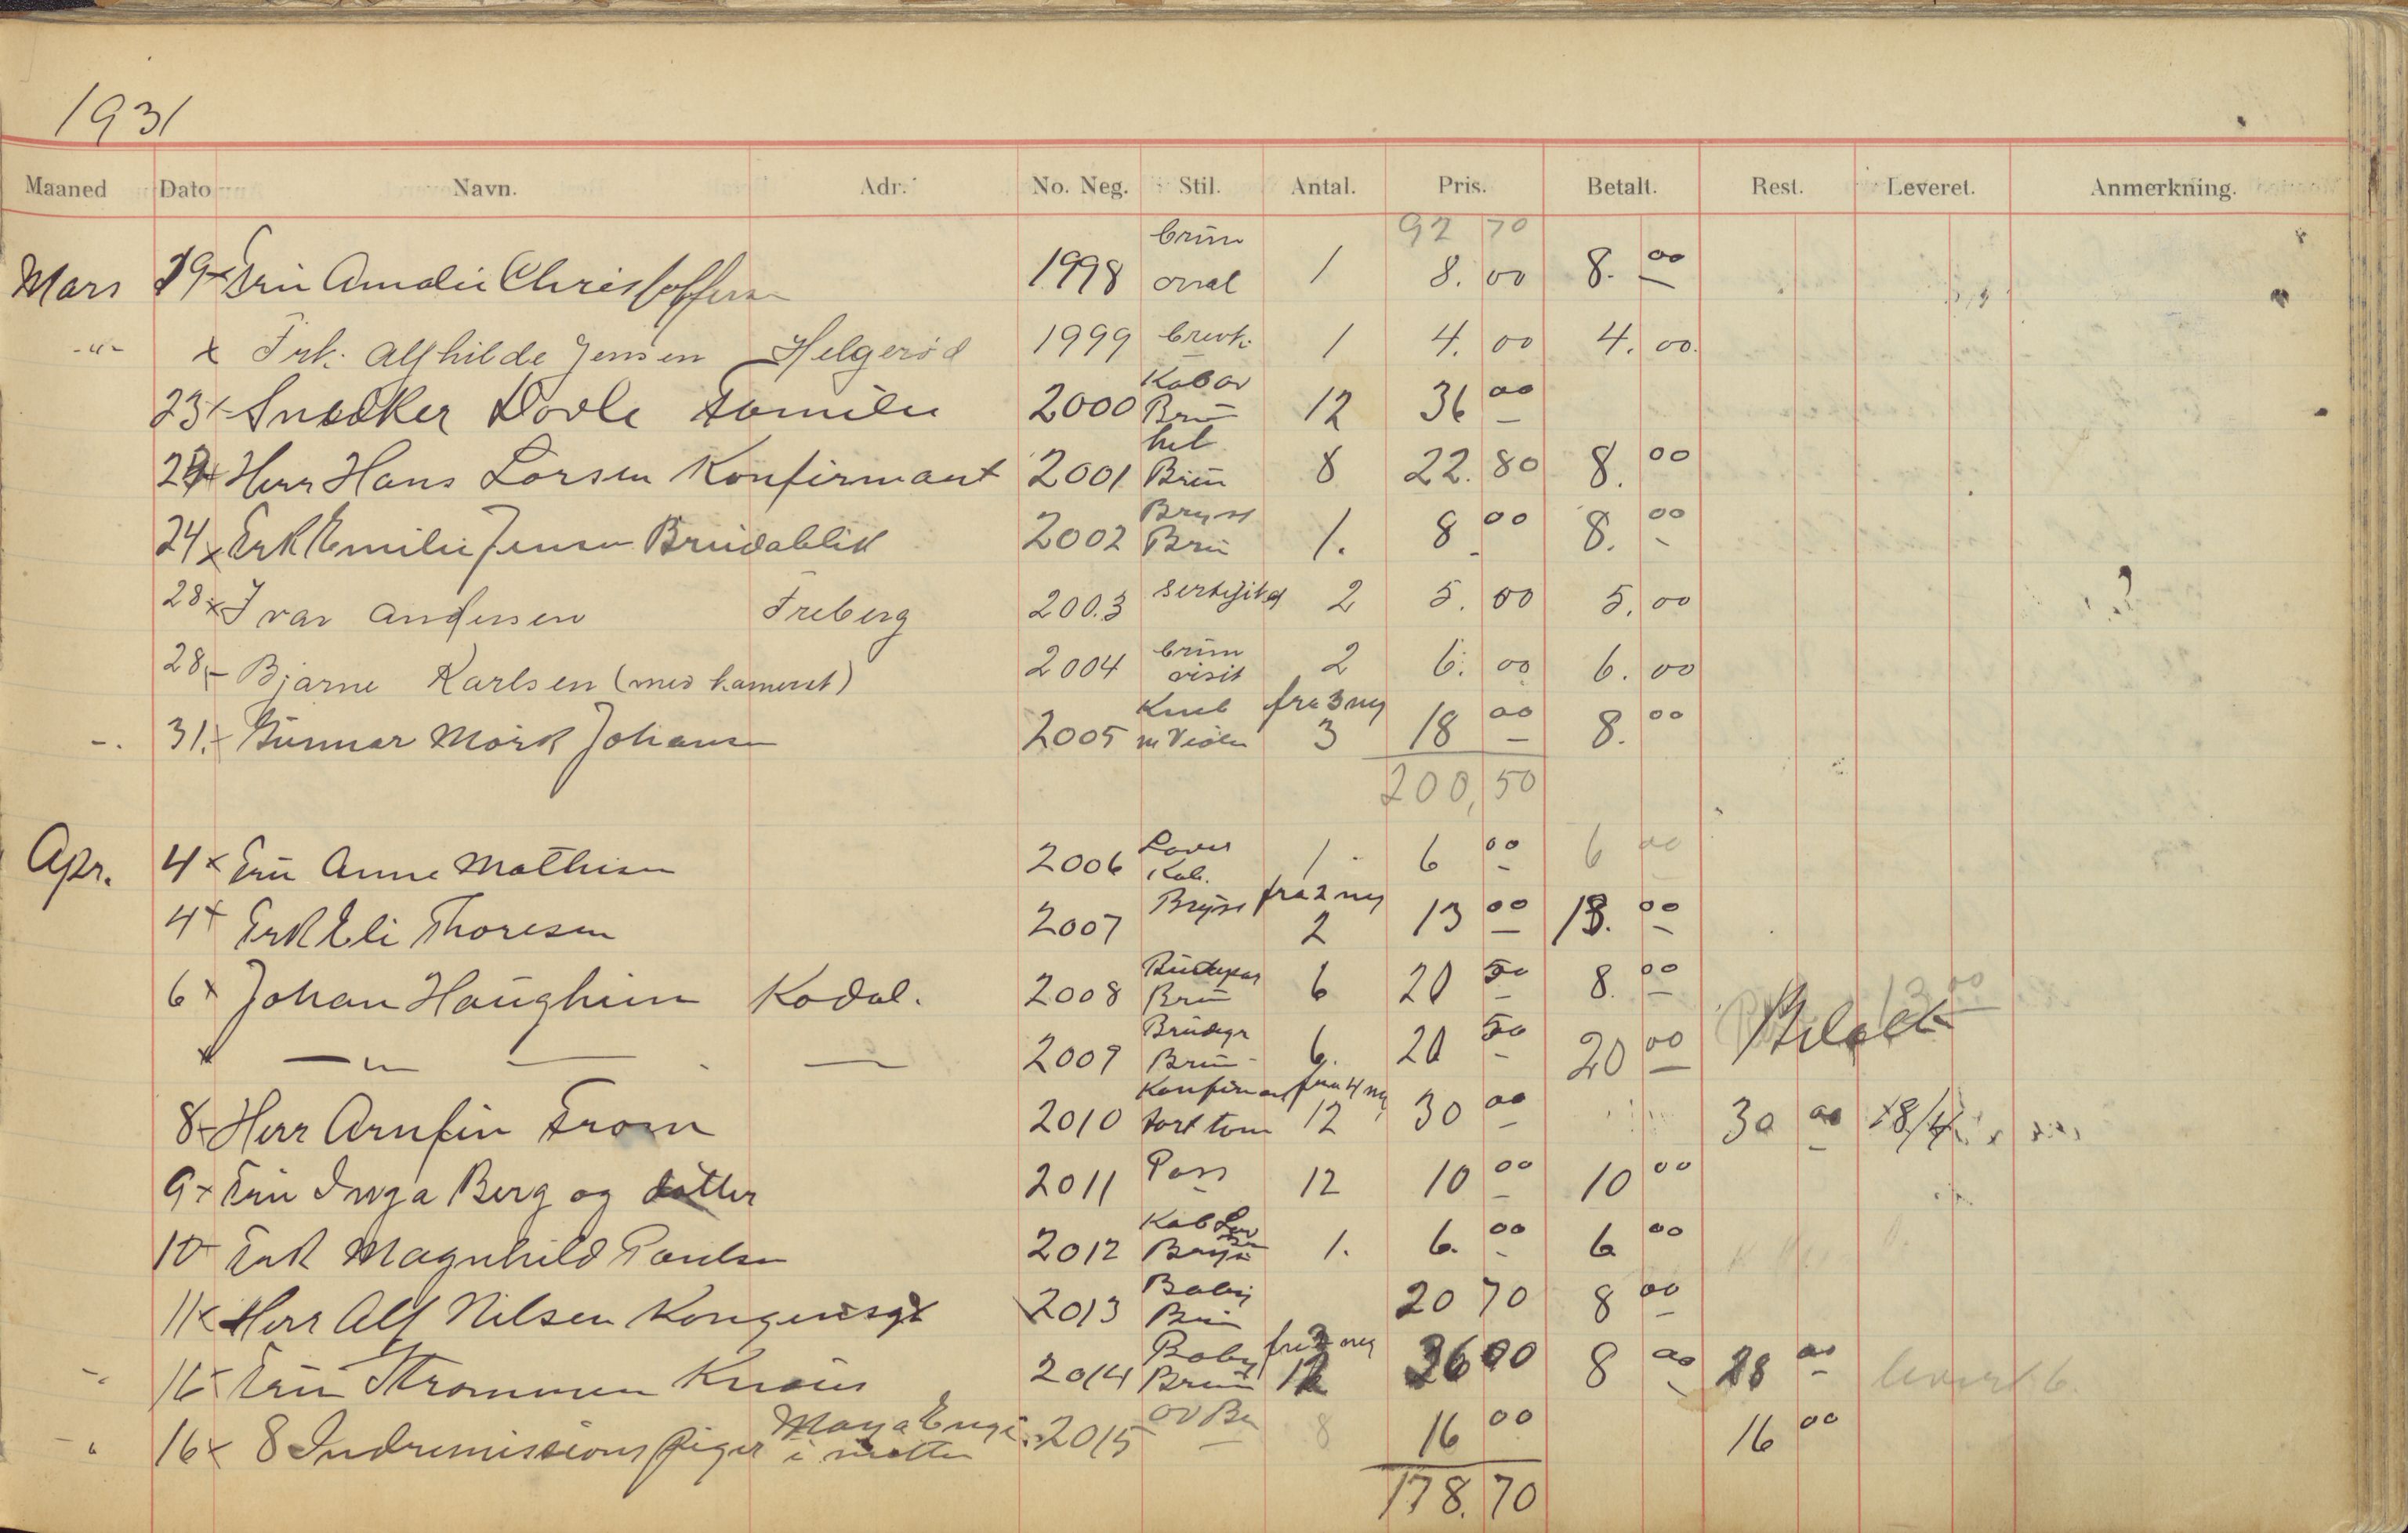 1931
Maaned Dato Navn. Adr. No. Neg. Stil. Antal. Pris. Betalt. Rest. Leveret. Anmerkning.
92 70
Mars 19 x Fru Amalie Christoffersen 1998 brun oval 1 8. 00 8. 00
-"- x Frk. Alfhilde Jensen Helgerød 1999 brevk. 1 4. 00 4. 00.
23 x Snedker Dovle Familie 2000 Kab ov Brun 12 36 00
24 x Herr Hans Larsen Konfirmant 2001 hel Brun 8 22. 80 8. 00
24 x Frk Emilie Jensen Breidablik 2002 Bryst Brun 1. 8 00 8. 00
28 x Ivar Andersen Freberg 2003 2 5. 00 5. 00
28 - Bjarne Karlsen (med kamerat) 2004 brun visit 2 6. 00 6. 00
-. 31. x Gunnar Mørk Johansen 2005 Kneb m Violin fra 3 neg 3 18 00 8. 00
200, 50
Apr. 4 x Fru Anne Mathisen 2006 Kab. 1 6 00 6 00
4 x Frk Eli Thoresen 2007 Bryst fra 2 neg 2 13 00 13. 00
6 x Johan Haughem Kodal. 2008 Brun 6 20 50 8. 00 13 00
x — " — — 2009 Brudegr Brun 6. 20 50 20 00 Betalt
8 - Herr Arnfin From 2010 Konfirmant sort tom fra 4 neg 12 30 00 30 00 18/4
9 x Fru Inga Berg og datter 2011 Pass 12 10 00 10 00
10 - Frk Magnhild Paulsen 2012 Kab Bryst 1. 6. 00 6 00
11 x Herr Alf Nilsen Kongensgt 2013 Baby Brun 20 70 8 00
16 x Fru Strømmen 2014 Baby Brun fra 2 neg 12 36 00 8 00 28 00 levert 6.
16 x 8 Indremissionspiger Maya Engi i midten 2015 ov Br 8 16 00 16 00
178. 70